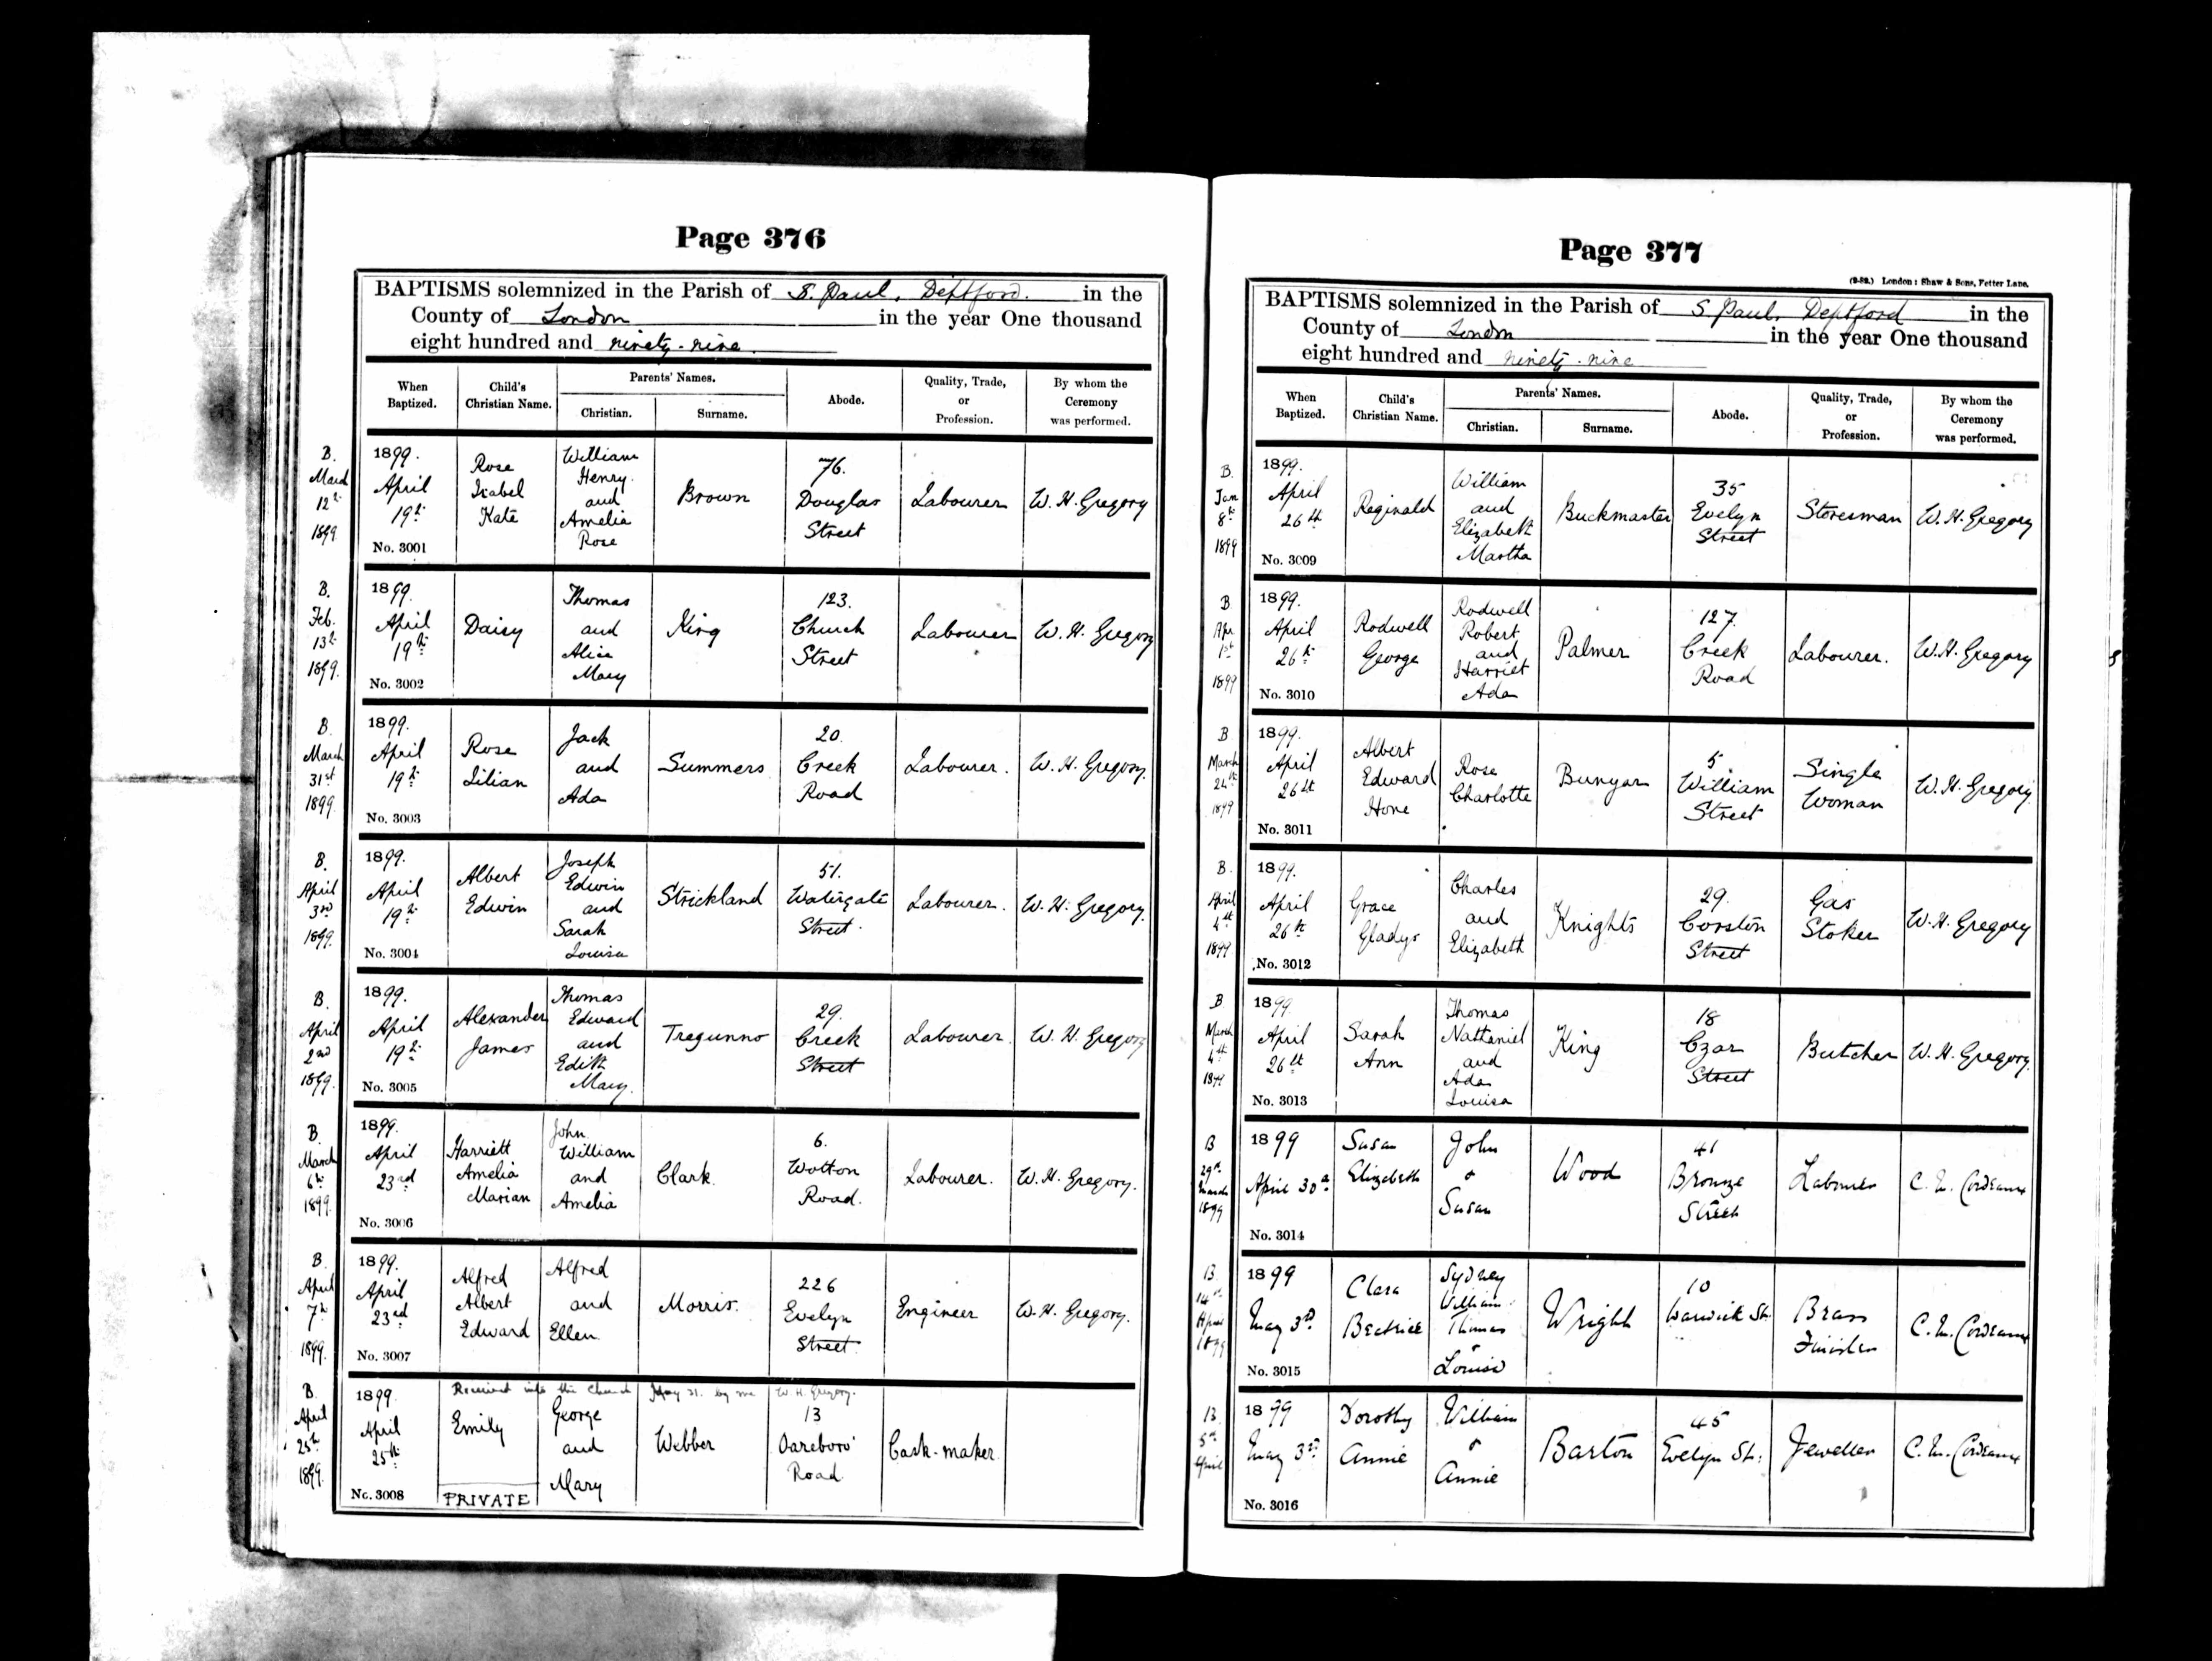 Page 376
BAPTISMS solemnized in the Parish of S. Paul, Deptford. in the
County of London in the year One thousand
eight hundred and ninety-nine.
When Baptized. Child's Christian Name. Parents' Names. Christian. Surname. Abode. Quality, Trade, or Profession. By whom the Ceremony was performed.
B. March 12th 1899
1899. April 19th No. 3001
Rose Isabel Kate
William Henry and Amelia Rose
Brown
76. Douglas Street
Labourer
W. H. Gregory
B. Feb. 13th 1899.
1899. April 19th No. 3002
Daisy
Thomas and Alice Mary
King
123. Church Street
Labourer
W. H. Gregory
B. March 31st 1899
1899. April 19th No. 3003
Rose Lilian
Jack and Ada
Summers
20. Creek Road
Labourer.
W. H. Gregory.
B. April 3rd 1899.
1899. April 19th No. 3004
Albert Edwin
Joseph Edwin and Sarah Louisa
Strickland
51. Watergate Street.
Labourer.
W. H. Gregory.
B. April 2nd 1899.
1899. April 19th No. 3005
Alexander James
Thomas Edward and Edith Mary.
Tregunno
29. Creek Street
Labourer.
W. H. Gregory
B. March 6th 1899.
1899. April 23rd No. 3006
Harriett Amelia Marian
John William and Amelia
Clark.
6. Wotton Road.
Labourer.
W. H. Gregory.
B. April 7th 1899.
1899. April 23rd No. 3007
Alfred Albert Edward
Alfred and Ellen.
Morris.
226 Evelyn Street.
Engineer
W. H. Gregory.
B. April 25th 1899.
Received into the Church May 31. by me W. H. Gregory.
1899. April 25th No. 3008
Emily
PRIVATE
George and Mary
Webber
13 Road
Cask-maker.
Page 377
(9-98.) London: Shaw & Sons, Fetter Lane.
BAPTISMS solemnized in the Parish of S. Paul, Deptford in the
County of London in the year One thousand
eight hundred and ninety-nine
When Baptized. Child's Christian Name. Parents' Names. Christian. Surname. Abode. Quality, Trade, or Profession. By whom the Ceremony was performed.
B. Jan 8th 1899
1899. April 26th No. 3009
Reginald
William and Elizabeth Martha
Buckmaster
35 Evelyn Street
Storesman
W. H. Gregory
B Apr 1st 1899
1899. April 26th No. 3010
Rodwell George
Rodwell Robert and Harriet Ada
Palmer
127. Creek Road
Labourer.
W. H. Gregory
B March 24th 1899
1899. April 26th No. 3011
Albert Edward Hone
Rose Charlotte
Bunyan
5. William Street
Single Woman
W. H. Gregory
B. April 4th 1899
1899. April 26th No. 3012
Grace Gladys
Charles and Elizabeth
Knights
29. Corston Street
Gas Stoker
W. H. Gregory
B March 4th 1899
1899. April 26th No. 3013
Sarah Ann
Thomas Nathaniel and Ada Louisa
King
18 Czar Street
Butcher
W. H. Gregory.
B 29th March 1899
1899 April 30th No. 3014
Susan Elizabeth
John & Susan
Wood
41 Bronze Street
Labourer
C. E. Cordeaux
B 14th April 1899
1899 May 3rd No. 3015
Clara Beatrice
Sydney William Thomas & Louisa
Wright
10 Warwick St:
Brass Finisher
C. E. Cordeaux
B 5th April
1899 May 3rd No. 3016
Dorothy Annie
William & Annie
Barton
45 Evelyn St:
Jeweller
C. E. Cordeaux